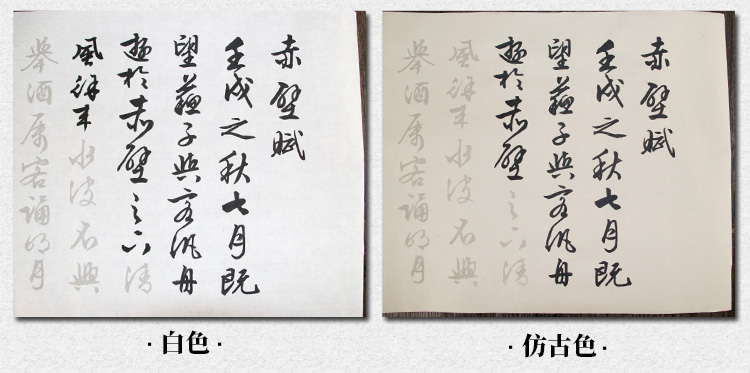 赤壁賦
壬戌之秋七月既
望蘇子與客汎舟
遊於赤壁之下清
風徐来水波不興
舉酒属客誦明月
·白色·
赤壁賦
壬戌之秋七月既
望蘇子與客汎舟
遊於赤壁之下清
風徐来水波不興
舉酒属客誦明月
·仿古色·